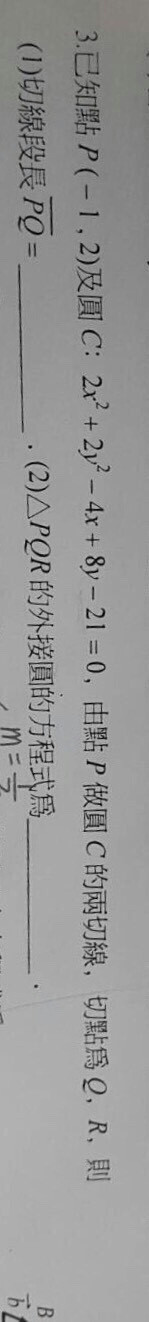 3.已知點 P(-1, 2)及圓 C: 2x² + 2y² - 4x + 8y - 21 = 0, 由點 P 做圓 C 的兩切線, 切點為 Q, R, 則
(1)切線段長 \overline{PQ} = ________. (2)△PQR 的外接圓的方程式為________.